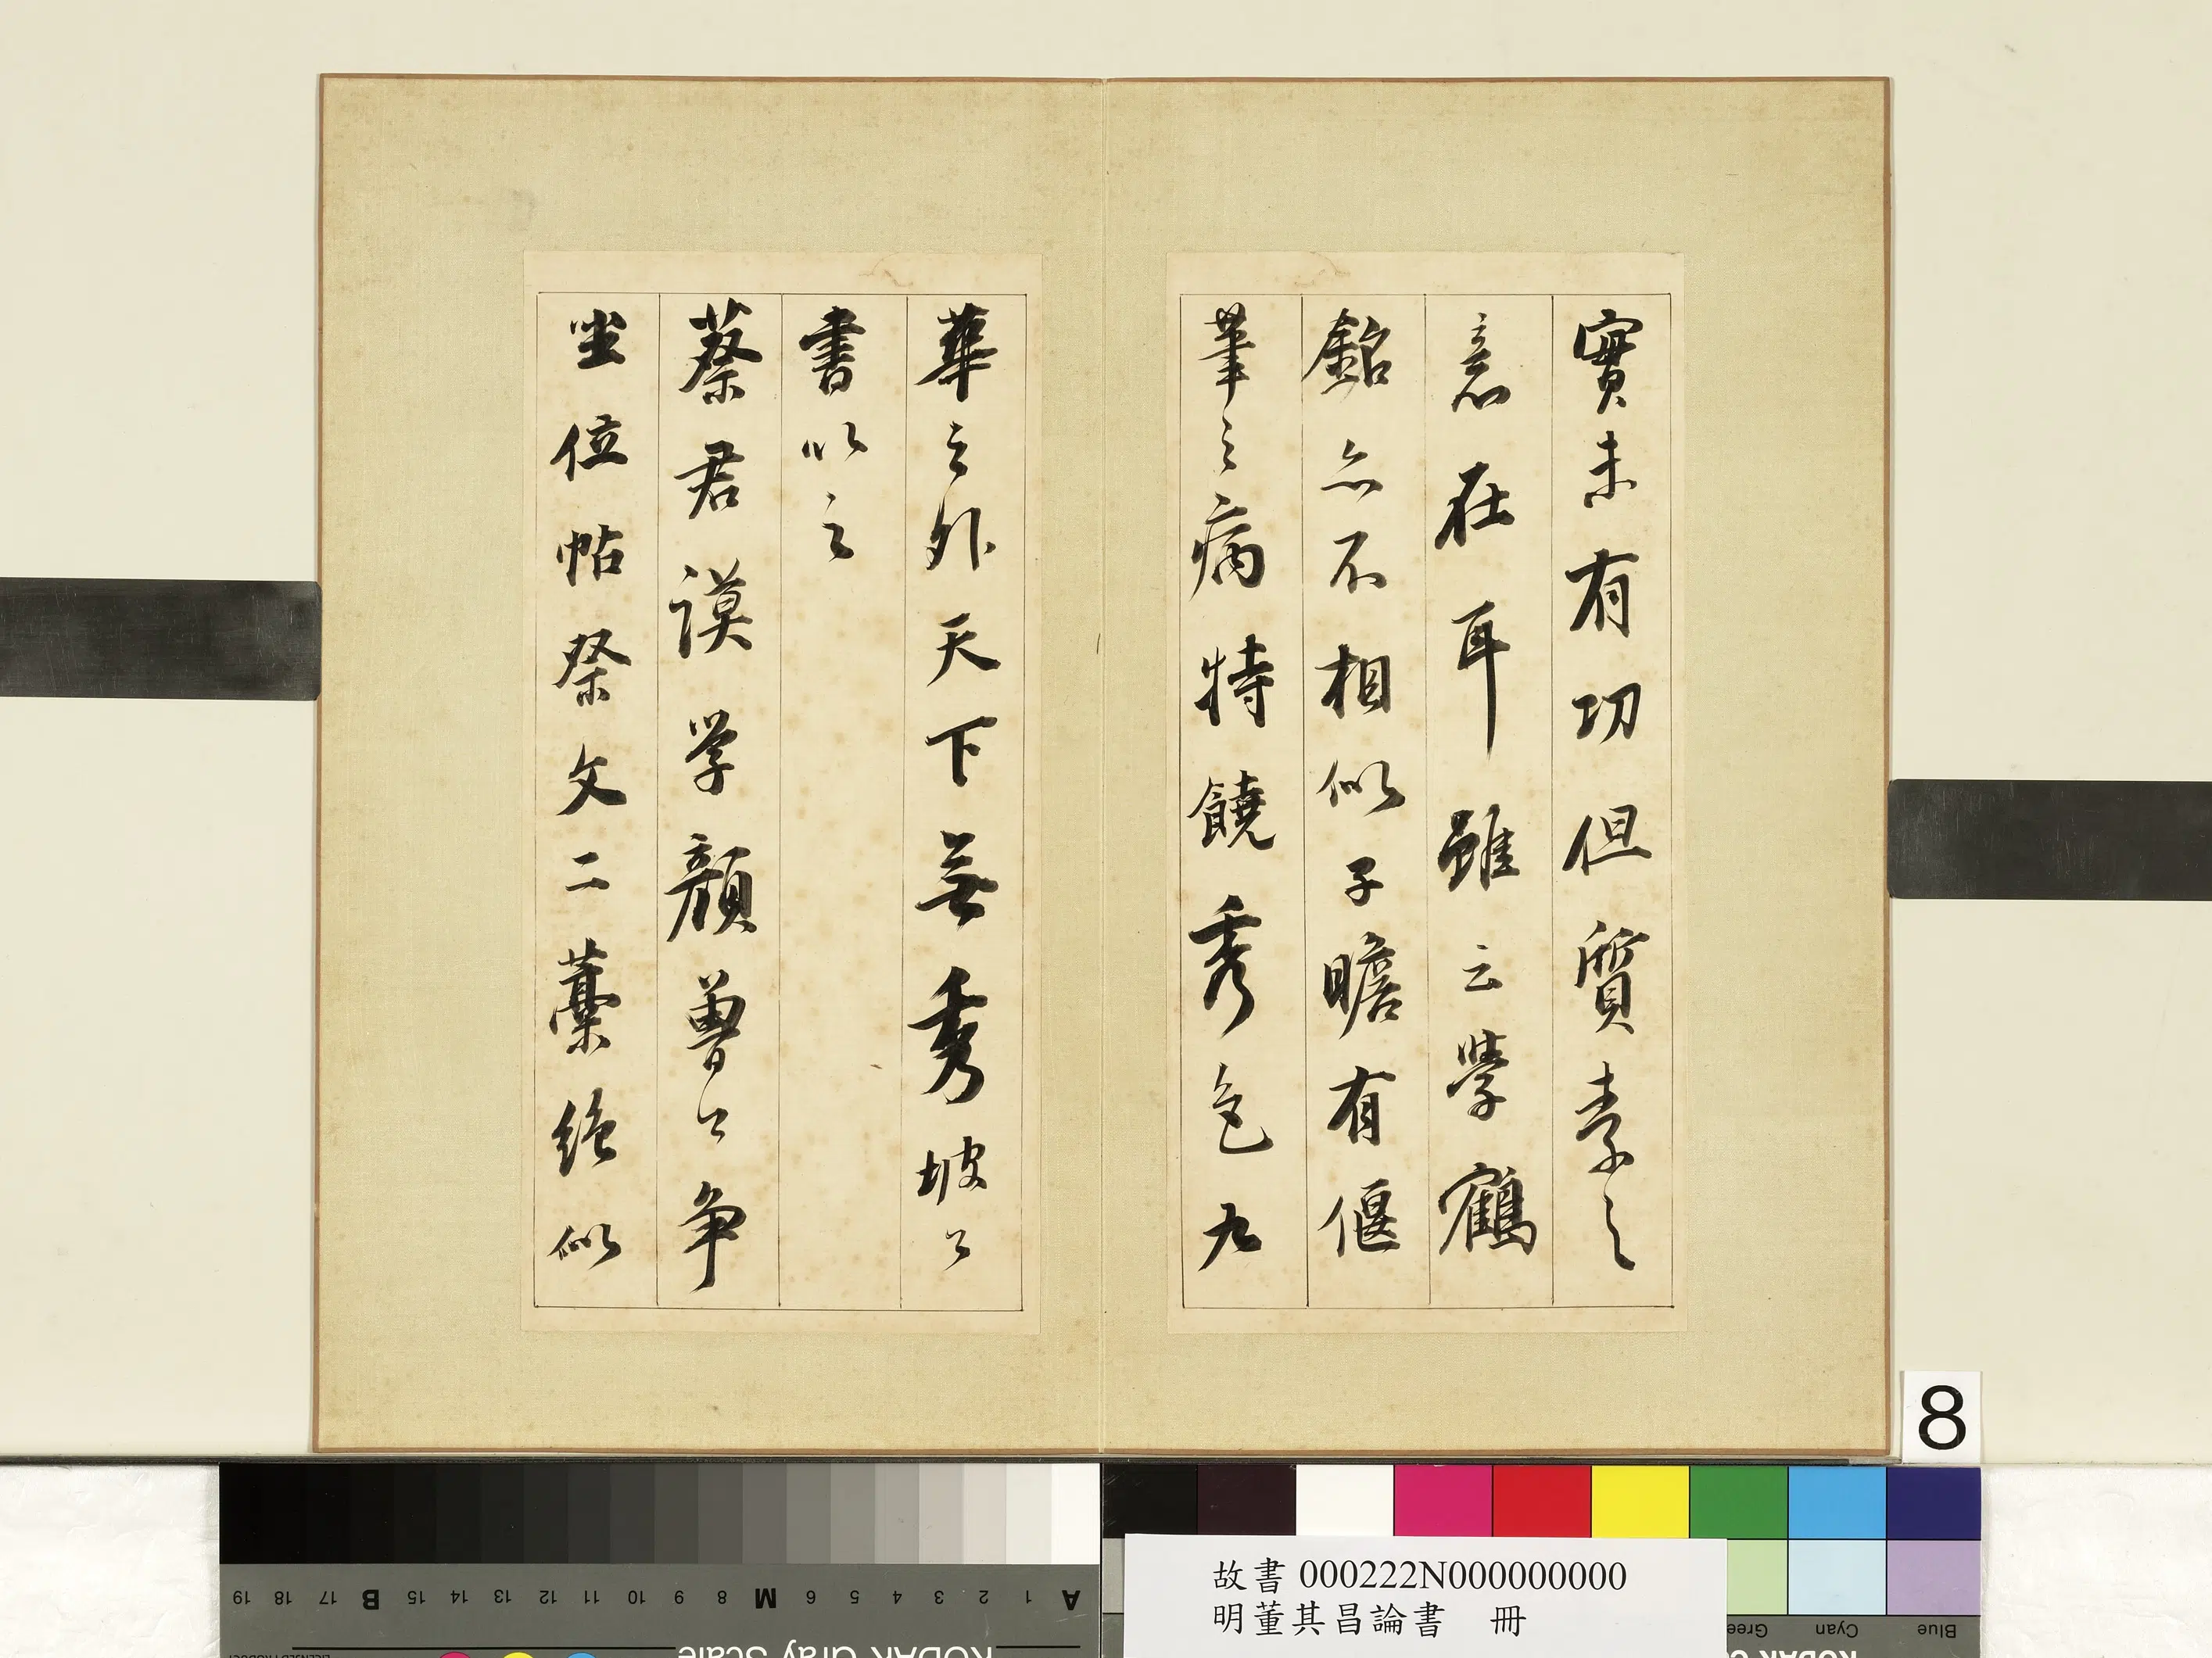 實未有功但質素之
意在耳雖云學鶴
銘亦不相似子瞻有偃
筆之病特饒秀色九
華之外天下無秀坡公
書以之
蔡君謨學顏魯公爭
坐位帖祭文二藁絕似
8
故書 000222N000000000
明董其昌論書 冊
A 1 2 3 4 5 6 M 8 9 10 11 12 13 14 15 B 17 18 19
KODAK Gray Scale
Blue Cyan Green